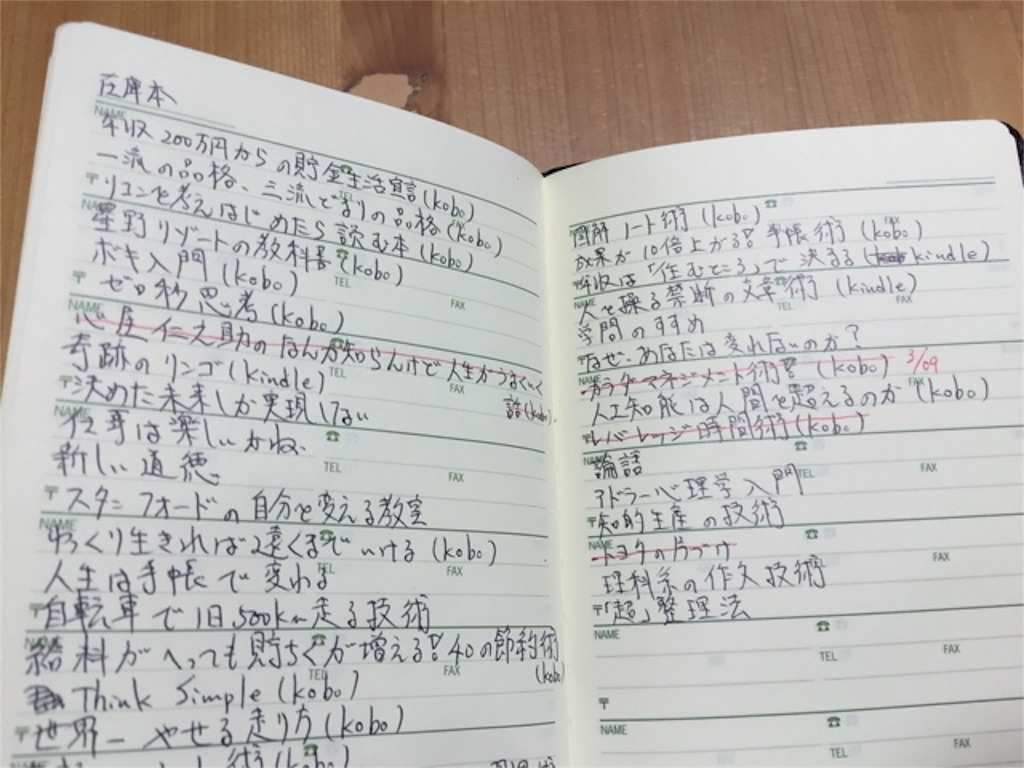 在庫本
年収200万円からの貯金生活宣言(kobo)
一流の品格、三流どまりの品格(kobo)
リコンを考えはじめたら読む本(kobo)
星野リゾートの教科書(kobo)
ボキ入門(kobo)
ゼロ秒思考(kobo)
心屋仁之助のなんか知らんけど人生がうまくいく
話(kobo).
奇跡のリンゴ(kindle)
決めた未来しか実現しない
仕事は楽しいかね
新しい道徳
スタンフォードの自分を変える教室
ゆっくり生きれば遠くまでいける(kobo)
人生は手帳で変わる
自転車で1日500km走る技術
給料がへっても貯ちくが増える!40の節約術
(kobo)
Think Simple(kobo)
世界一やせる走り方(kobo)
図解ノート術(kobo)
成果が10倍上がる!手帳術(kobo)
年収は「住むところ」で決まる(kindle)
人を操る禁断の文章術(kindle)
学問のすすめ
なぜ、あなたは変れないのか?
カラダマネジメント術!(kobo) 3/09
人工知能は人間を超えるのか(kobo)
レバレッジ時間術(kobo)
論語
アドラー心理学入門
知的生産の技術
トヨタの片づけ
理科系の作文技術
「超」整理法
NAME
TEL
FAX
〒
NAME
TEL
FAX